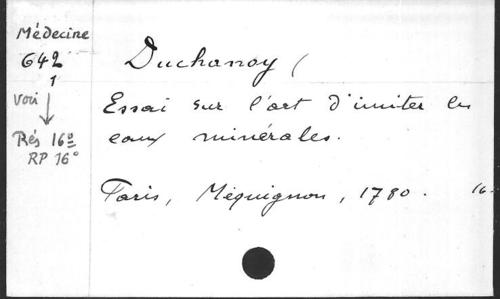 Médecine
642
1
Voir
Rés 16º
RP 16°
Duchanoy (
Essai sur l'art d'imiter les
eaux minérales.
Paris, Méquignon, 1780. 16-